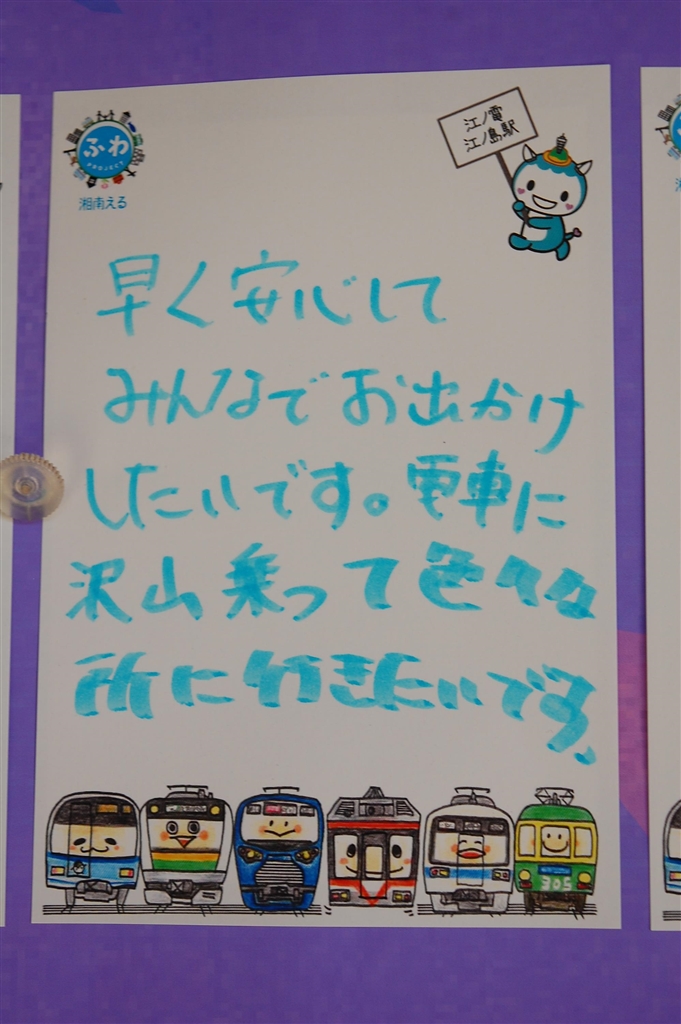 ふわ
PROJECT
湘南える
江ノ電
江ノ島駅
早く安心して
みんなでお出かけ
したいです。電車に
沢山乗って色々な
所に行きたいです。
305